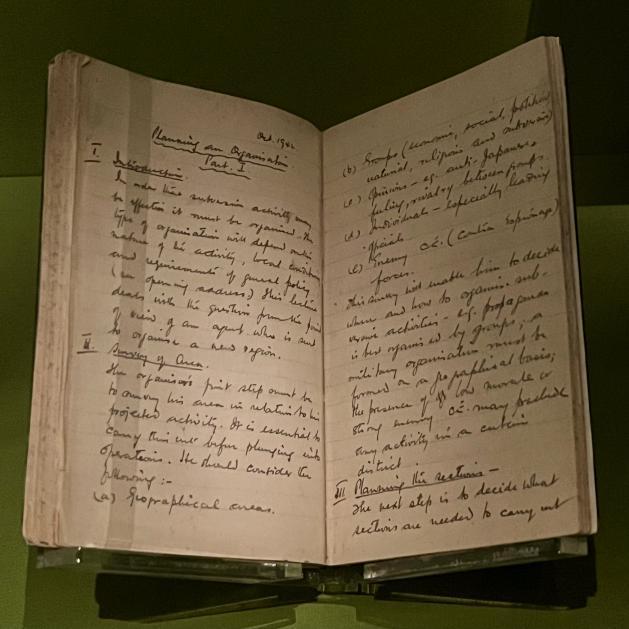 Oct. 1942
Planning an Organisation
Part. I.
I Introduction.
In order that subversive activity may
be effective it must be organised. The
type of organisation will depend on the
nature of his activity, local conditions
and requirements of general policy
(in opening address) This lecture
deals with the question from the point
of view of an agent who is sent
to organise a new region.
II. Survey of Area.
The organiser's first step must be
to survey his area in relation to his
projected activity. It is essential to
carry this out before plunging into
operations. He should consider the
following:-
(a) Geographical areas.
(b) Groups (economic, social, political
national, religious and subversive)
(c) Opinions - eg. anti-Japanese
feeling, rivalry between groups.
(d) Individuals - especially leading
officials.
(e) Enemy C.E. (Contra Espionage)
forces.
This survey will enable him to decide
when and how to organise sub-
versive activities - e.g. propaganda
is best organised by groups; a
military organisation must be
formed on a geographical basis;
the presence of low morale or
strong enemy C.E. may preclude
any activity in a certain
district.
III Planning the sections -
The next step is to decide what
sections are needed to carry out